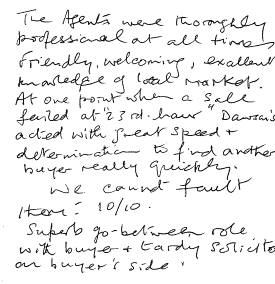 The Agents were thoroughly
professional at all times
Friendly, welcoming, excellent
knowledge of local market.
At one point when a sale
failed at "23rd-hour" Dawson's
acted with great speed +
determination to find another
buyer really quickly.
We cannot fault
them! 10/10.
Superb go-between role
with buyer + tardy solicito
on buyer's side.